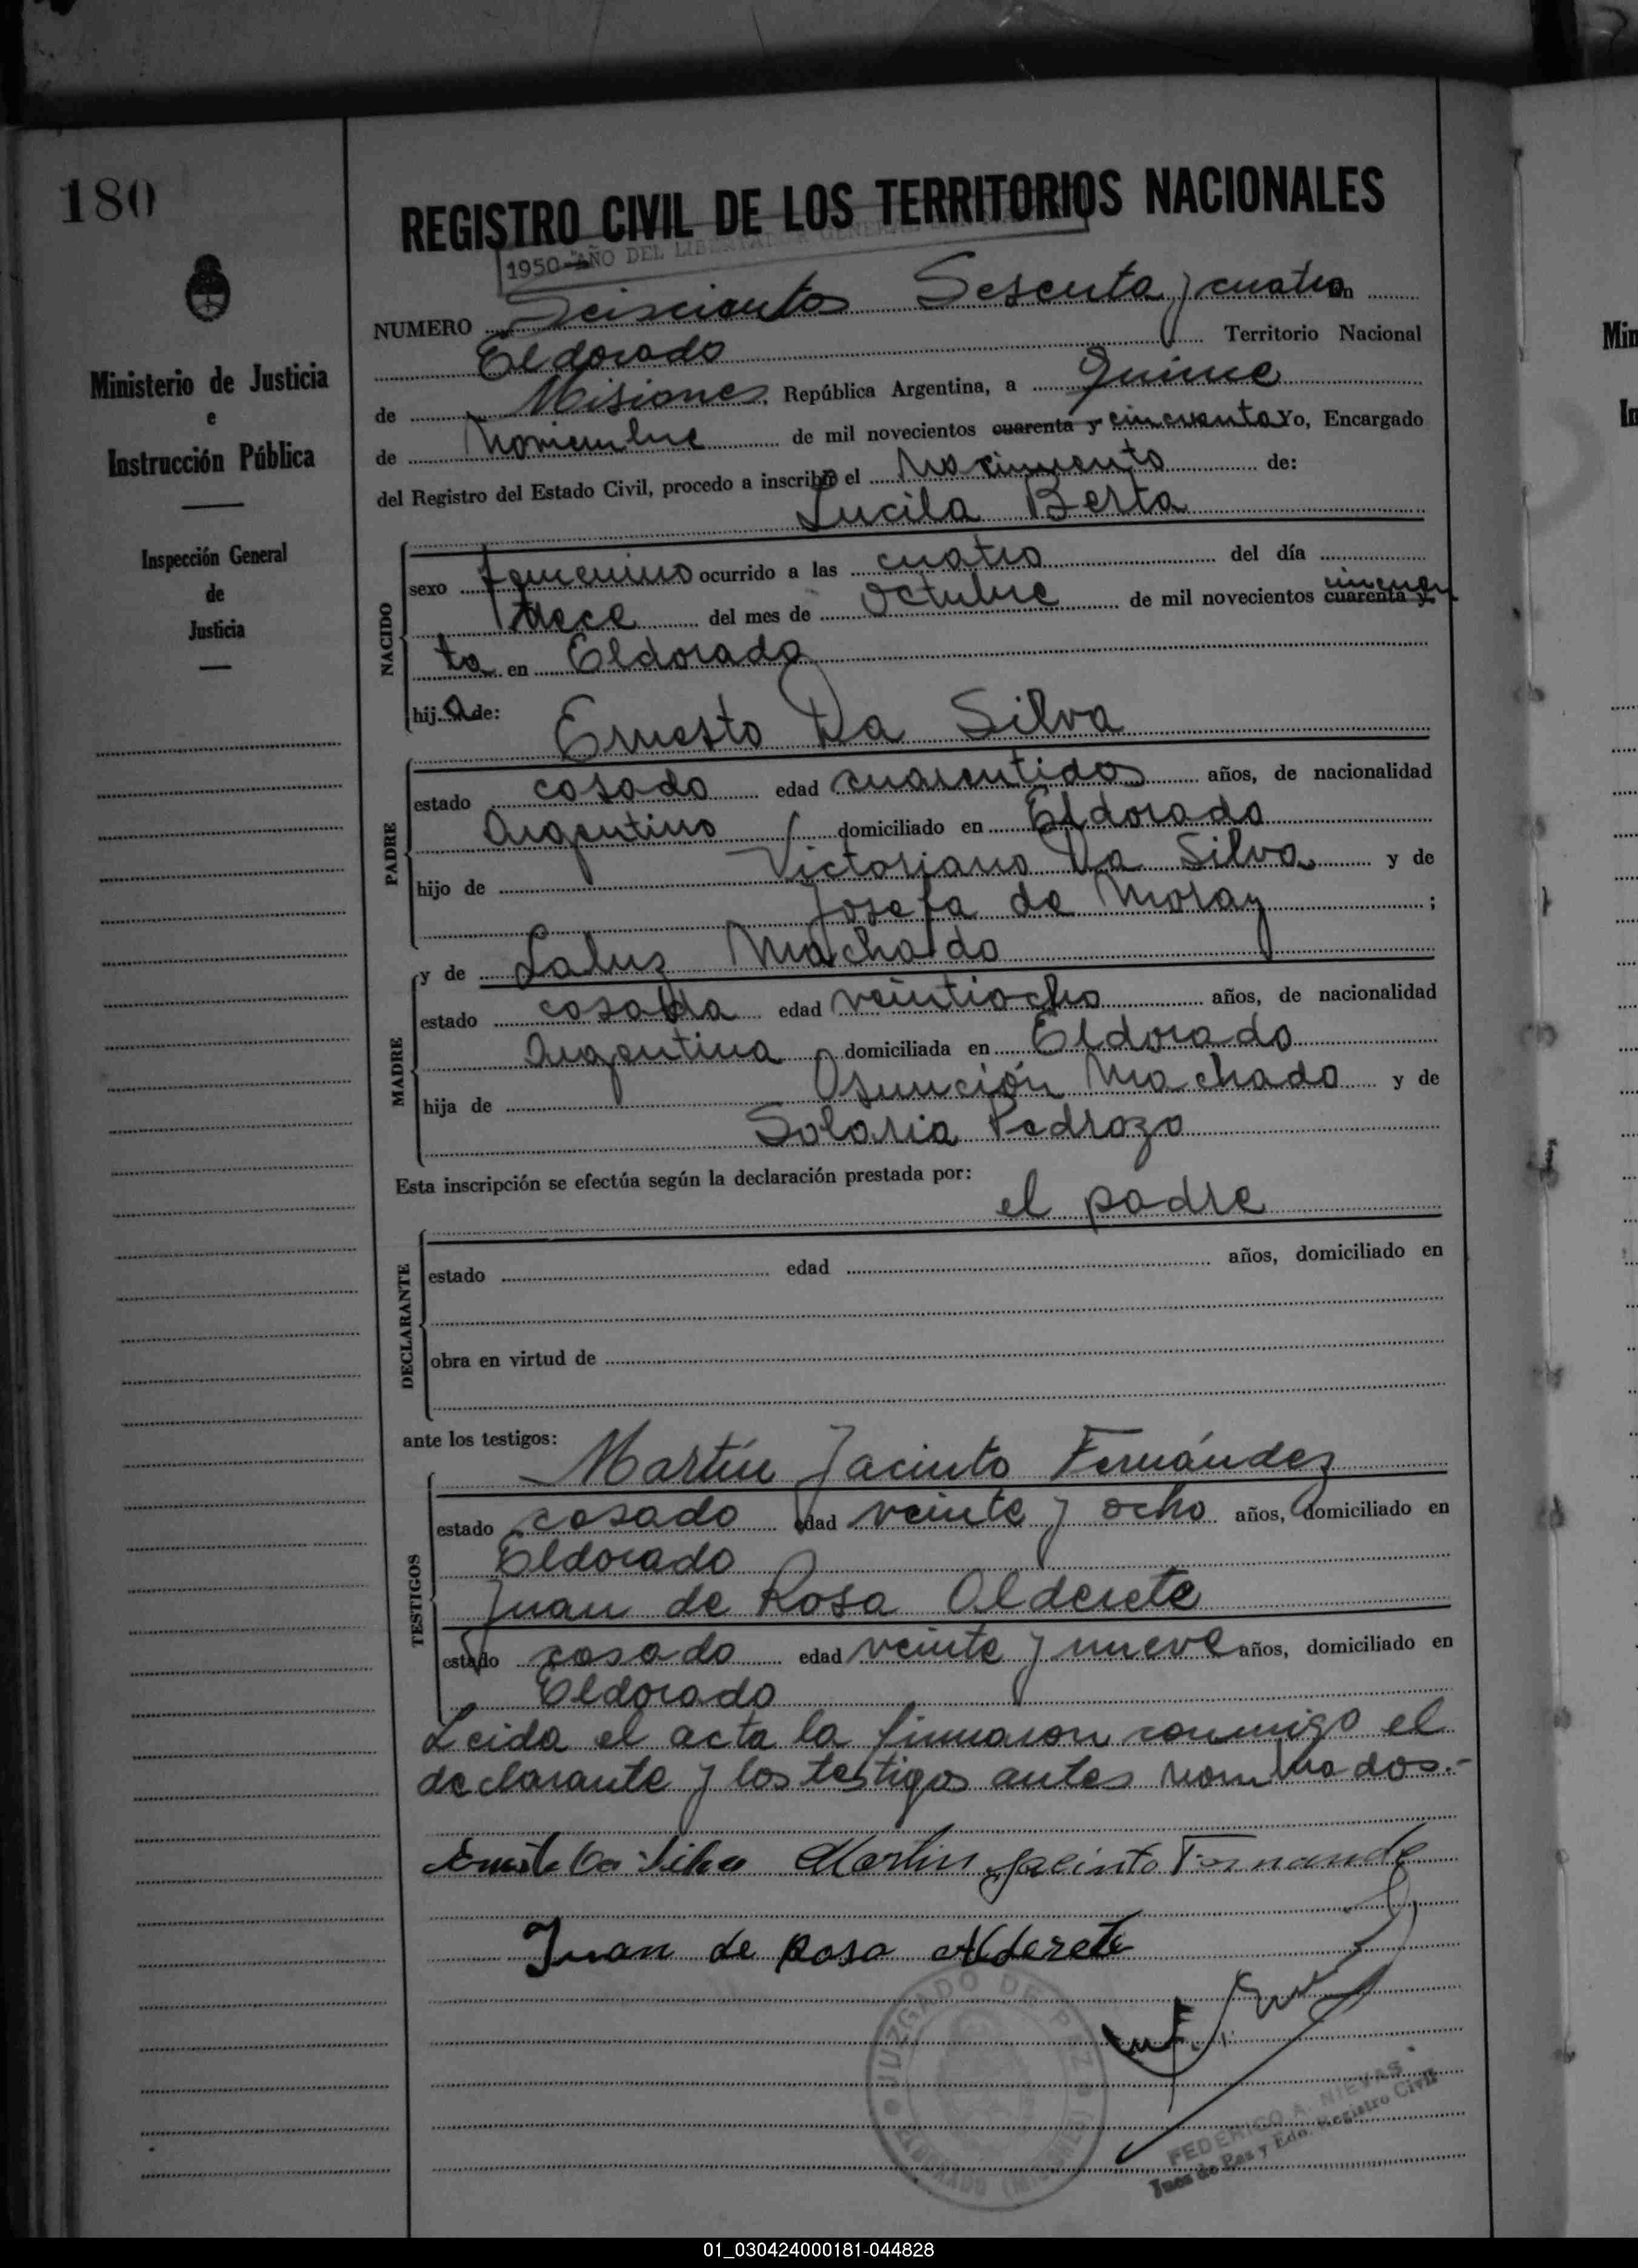 180
Ministerio de Justicia
e
Instrucción Pública
Inspección General
de
Justicia
REGISTRO CIVIL DE LOS TERRITORIOS NACIONALES
1950 - AÑO DEL LIBERTADOR GENERAL
NUMERO Seiscientos Sesenta y cuatro en
Eldorado Territorio Nacional
de Misiones, República Argentina, a Quince
de Noviembre de mil novecientos cuarenta y cincuenta Yo, Encargado
del Registro del Estado Civil, procedo a inscribir el Nacimiento de:
Lucila Berta
NACIDO
sexo femenino ocurrido a las cuatro del día
trece del mes de Octubre de mil novecientos cuarenta y cincuen
ta en Eldorado
hij a de:
Ernesto Da Silva
PADRE
estado casado edad cuarentidos años, de nacionalidad
Argentino domiciliado en Eldorado
hijo de Victoriano Da Silva y de
Josefa de Moray ;
MADRE
y de Laluz Machado
estado casada edad veintiocho años, de nacionalidad
Argentina domiciliada en Eldorado
hija de Asunción Machado y de
Solaria Pedrozo
Esta inscripción se efectúa según la declaración prestada por:
el padre
DECLARANTE
estado edad años, domiciliado en
obra en virtud de
ante los testigos:
Martín Jacinto Fernández
TESTIGOS
estado casado edad veinte y ocho años, domiciliado en
Eldorado
Juan de Rosa Alderete
estado casado edad veinte y nueve años, domiciliado en
Eldorado
Leida el acta la firmaron conmigo el
declarante y los testigos antes nombrados.-
Ernesto Da Silva Martin Jacinto Fernandez
Juan de Rosa Alderete
JUZGADO DE PAZ
ELDORADO (MISIONES)
FEDERICO A. NIEVAS
Juez de Paz y Edo. Registro Civil
01_030424000181-044828